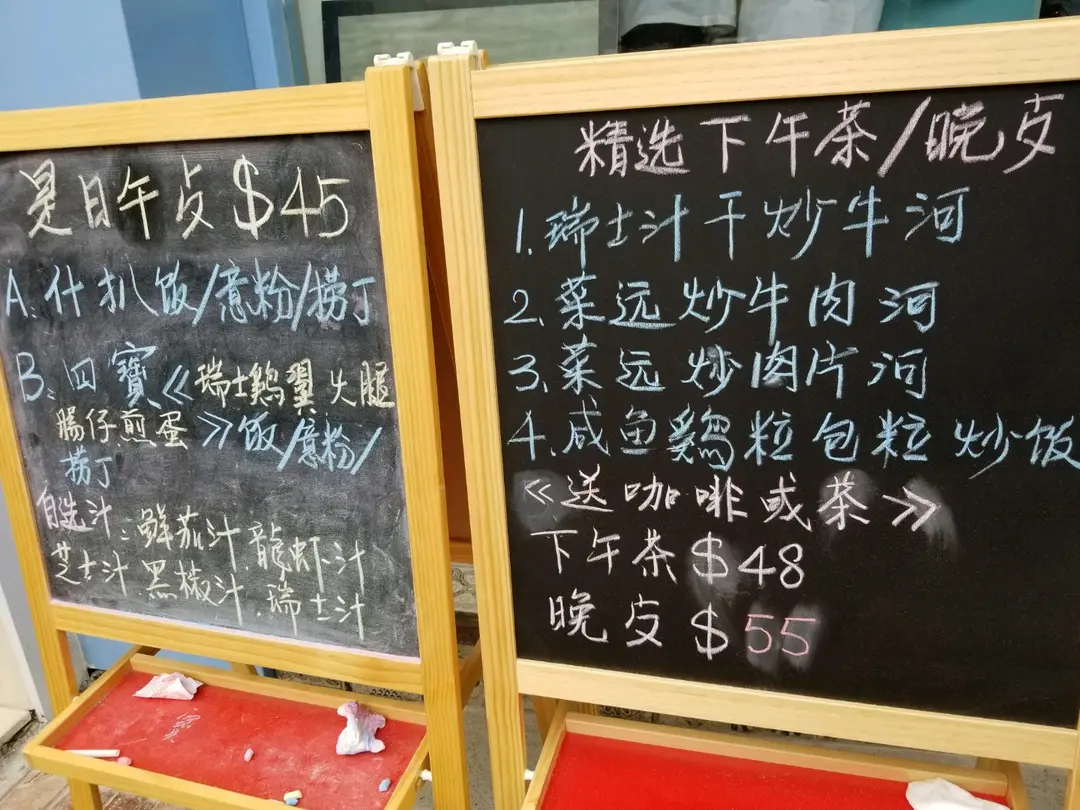 是日午市 $45
A. 什扒饭/意粉/捞丁
B. 四寶《瑞士鷄翼火腿
腸仔煎蛋》饭/意粉/
捞丁
自选汁:鲜茄汁.龍虾汁
芝士汁.黑椒汁.瑞士汁
精选下午茶/晚市
1. 瑞士汁干炒牛河
2. 菜远炒牛肉河
3. 菜远炒肉片河
4. 咸鱼鷄粒包粒炒饭
《送咖啡或茶》
下午茶 $48
晚市 $55